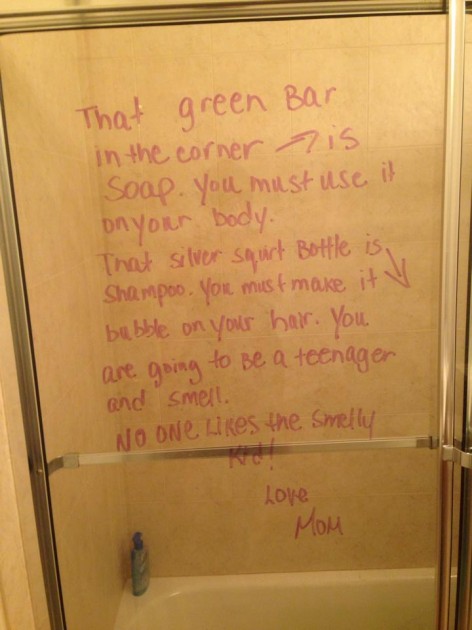 That green Bar
in the corner → is
Soap. You must use it
on your body.
That silver squirt Bottle is
shampoo. You must make it ↘
bubble on your hair. You
are going to be a teenager
and smell.
NO ONE LIKES the smelly
Kid!
Love
MOM